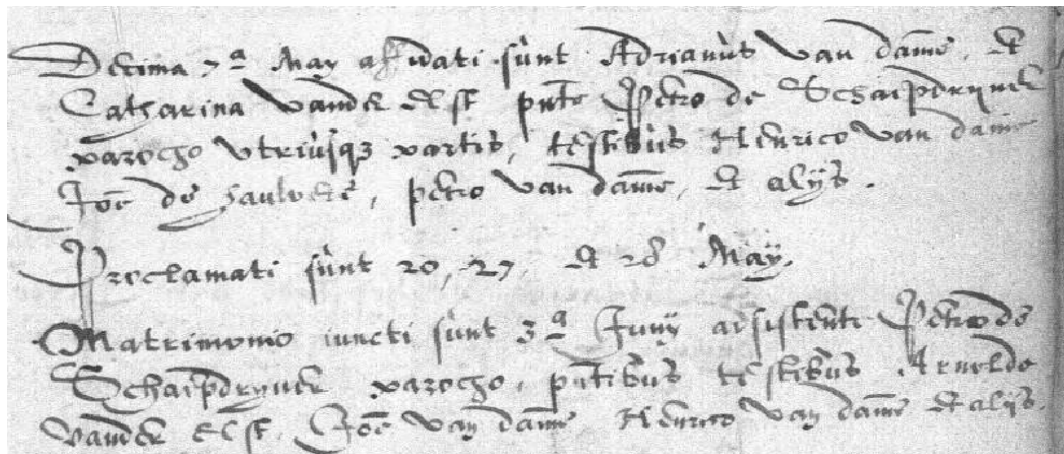 Decima 7ª May affidati sùnt Adrianùs van dame, Et
Catharina vander Elst pnte Petro de Schaepdryver
parocho vtriùsqz partis, testibùs Henrico van dame
Joe de, petro van dame, Et alijs.
Proclamati sùnt 20, 27, Et 28 Maÿ.
Matrimonio iuncti sùnt 3ª Junÿ adsistente Petro de
Schaepdryver parocho, pntibùs testibùs Arnoldo
vander Elst, Joe van dame, Henrico van dame Et alijs.